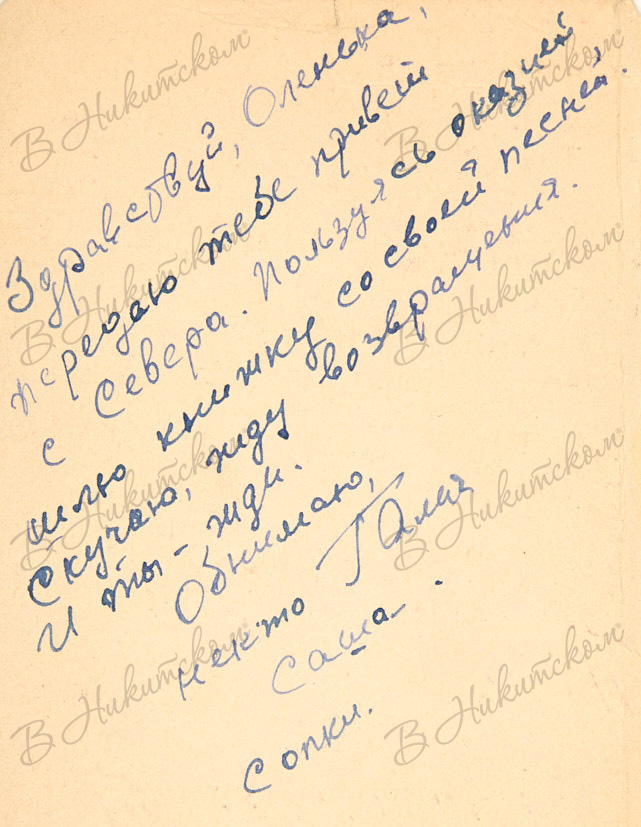 Здравствуй, Оленька,
передаю тебе привет
с Севера. Пользуясь оказией
шлю книжку со своей песней.
Скучаю, жду возвращения.
И ты - жди.
Обнимаю,
некто Галич
Саша.
Сопки.
В Никитском
В Никитском
В Никитском
В Никитском
В Никитском
В Никитском
В Никитском
В Никитском